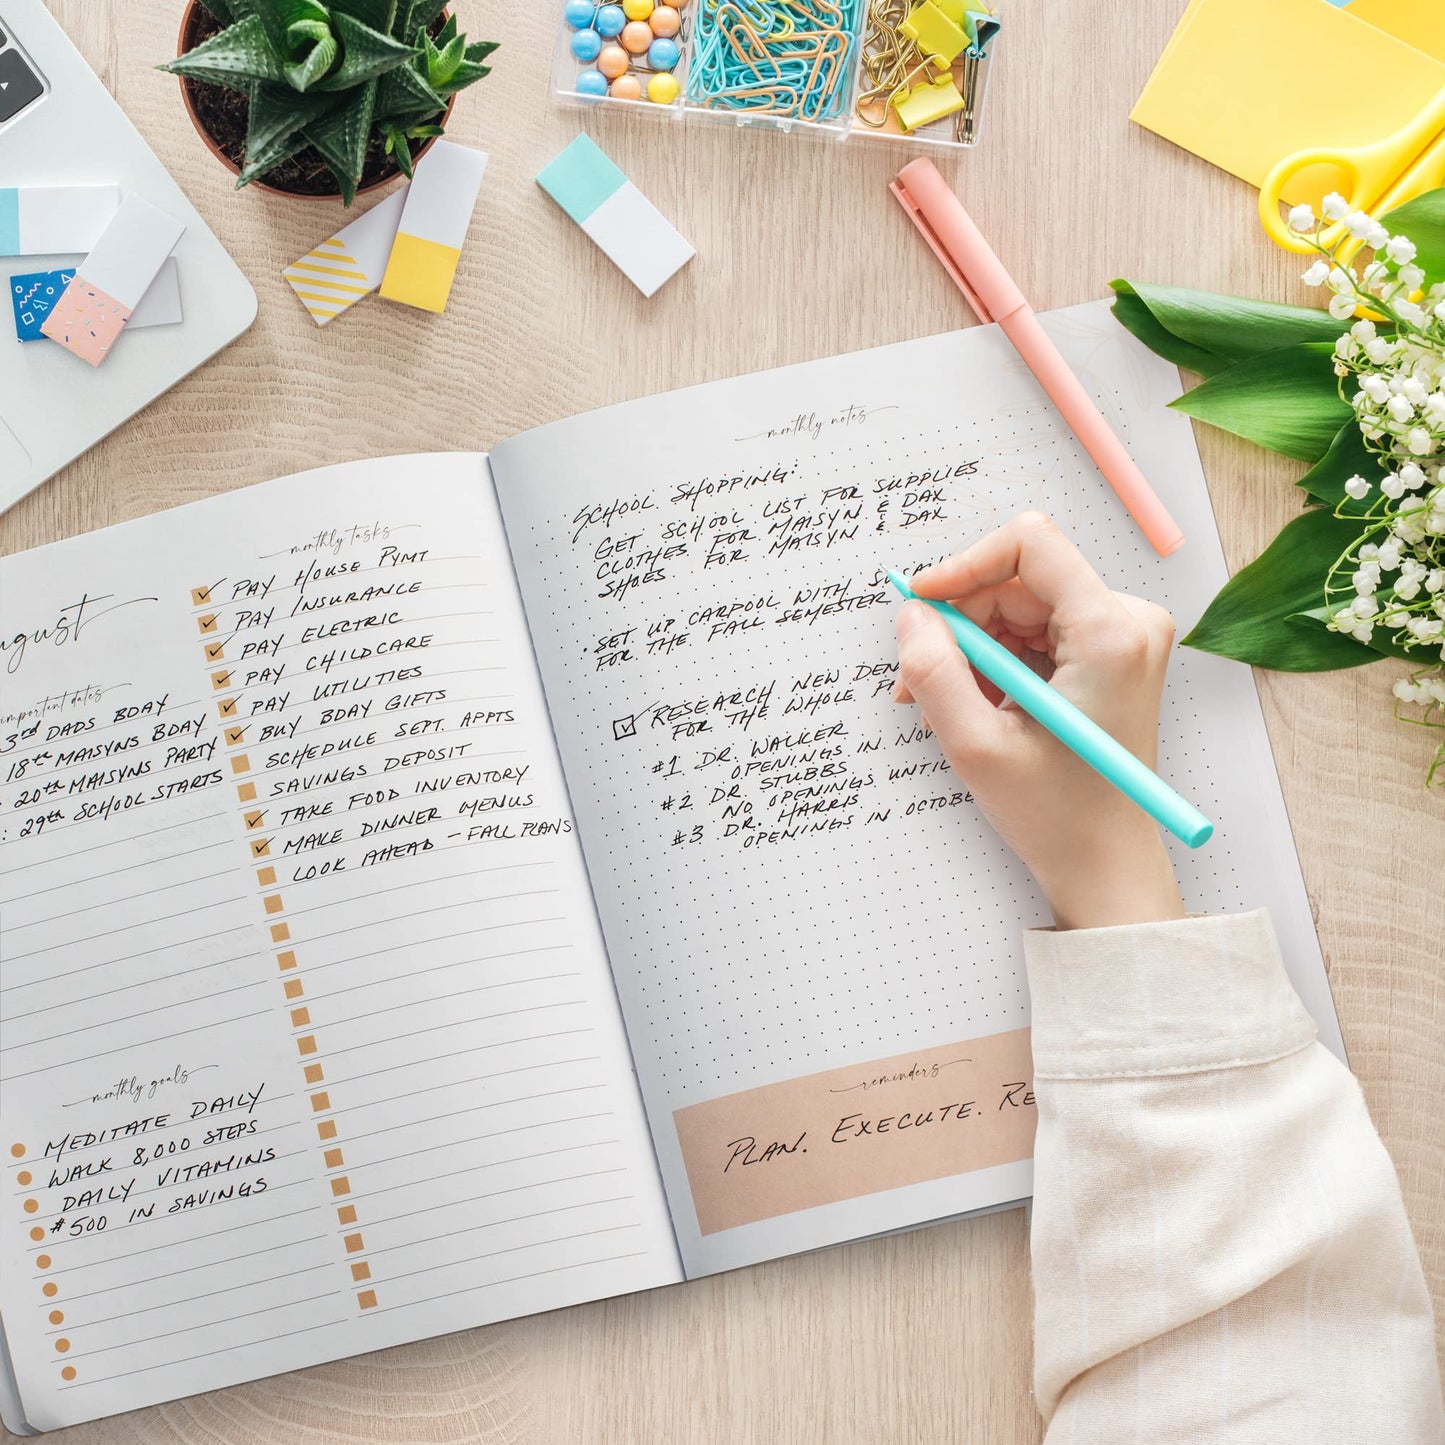 ugust
important dates
3rd DADS BDAY
18th MAISYNS BDAY
20th MAISYNS PARTY
: 29th SCHOOL STARTS
monthly goals
MEDITATE DAILY
WALK 8,000 STEPS
DAILY VITAMINS
$500 IN SAVINGS
monthly tasks
✓ PAY HOUSE PYMT
✓ PAY INSURANCE
✓ PAY ELECTRIC
✓ PAY CHILDCARE
✓ PAY UTILITIES
✓ BUY BDAY GIFTS
SCHEDULE SEPT. APPTS
SAVINGS DEPOSIT
✓ TAKE FOOD INVENTORY
✓ MAKE DINNER MENUS
LOOK AHEAD - FALL PLANS
monthly notes
SCHOOL SHOPPING:
GET SCHOOL LIST FOR SUPPLIES
CLOTHES FOR MAISYN & DAX
SHOES FOR MAISYN & DAX
• SET UP CARPOOL WITH
FOR THE FALL SEMESTER
☑ RESEARCH NEW DEN
FOR THE WHOLE F
#1 DR. WALKER
OPENINGS IN NOV
#2 DR. STUBBS
NO OPENINGS UNTIL
#3 DR. HARRIS
OPENINGS IN OCTOBE
reminders
PLAN. EXECUTE. RE